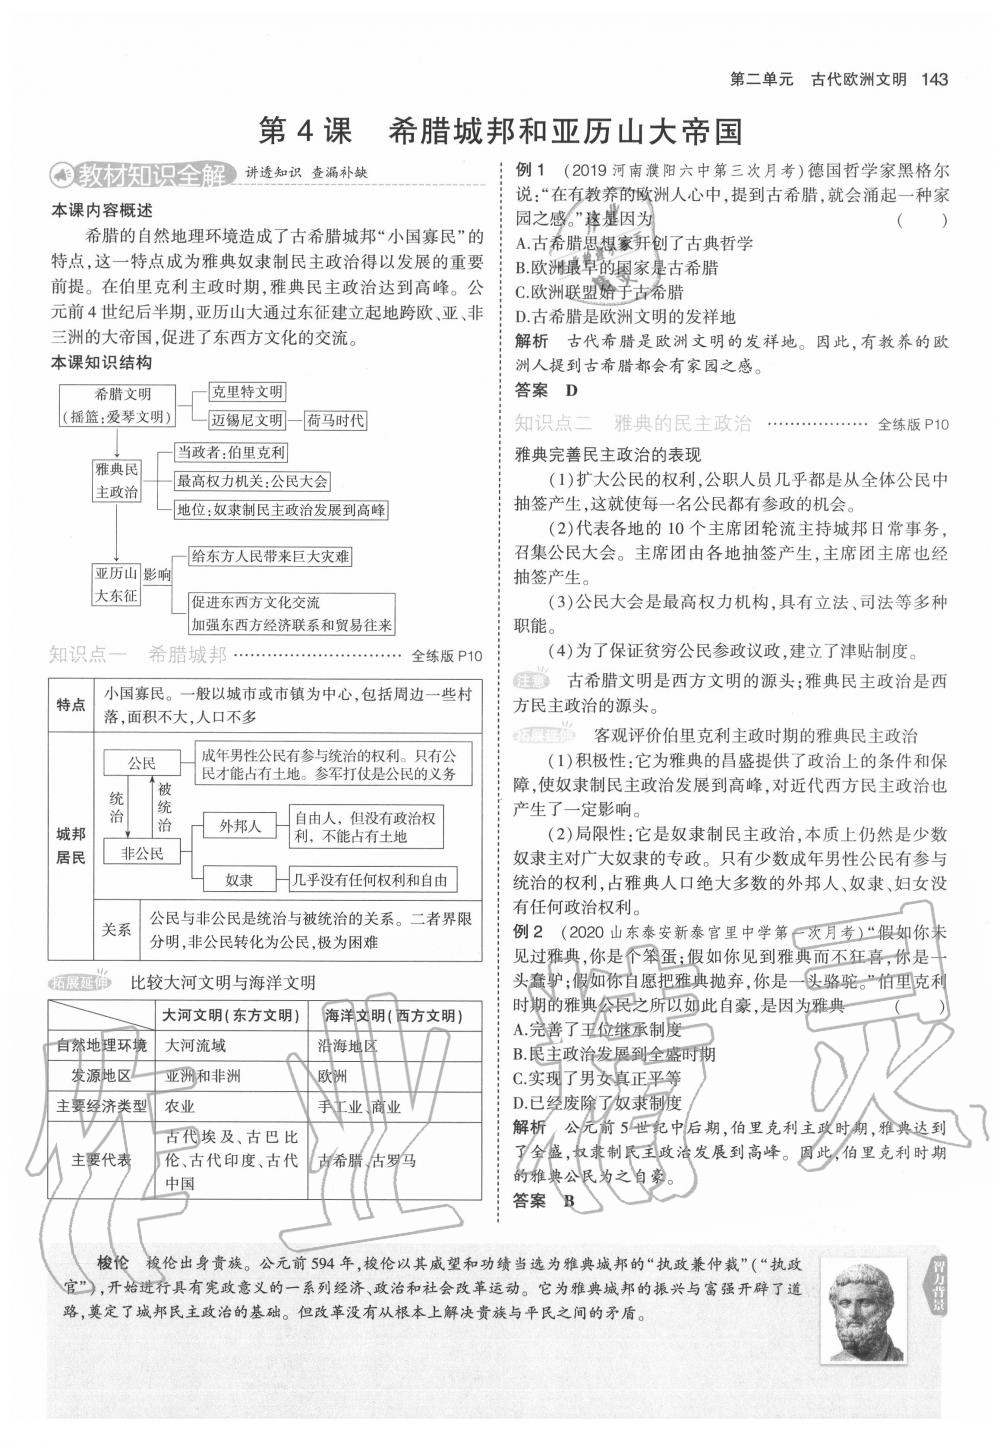 第二单元 古代欧洲文明 143
第4课 希腊城邦和亚历山大帝国
教材知识全解 讲透知识 查漏补缺
本课内容概述
希腊的自然地理环境造成了古希腊城邦“小国寡民”的
特点,这一特点成为雅典奴隶制民主政治得以发展的重要
前提。在伯里克利主政时期,雅典民主政治达到高峰。公
元前4世纪后半期,亚历山大通过东征建立起地跨欧、亚、非
三洲的大帝国,促进了东西方文化的交流。
本课知识结构
希腊文明
(摇篮:爱琴文明)
克里特文明
迈锡尼文明
荷马时代
雅典民
主政治
当政者:伯里克利
最高权力机关:公民大会
地位:奴隶制民主政治发展到高峰
亚历山
大东征
影响
给东方人民带来巨大灾难
促进东西方文化交流
加强东西方经济联系和贸易往来
知识点一 希腊城邦 ………………………… 全练版P10
特点
小国寡民。一般以城市或市镇为中心,包括周边一些村
落,面积不大,人口不多
城邦
居民
公民
成年男性公民有参与统治的权利。只有公
民才能占有土地。参军打仗是公民的义务
统治
被统治
非公民
外邦人
自由人，但没有政治权
利，不能占有土地
奴隶
几乎没有任何权利和自由
关系
公民与非公民是统治与被统治的关系。二者界限
分明,非公民转化为公民,极为困难
拓展延伸 比较大河文明与海洋文明
大河文明(东方文明) 海洋文明(西方文明)
自然地理环境 大河流域 沿海地区
发源地区 亚洲和非洲 欧洲
主要经济类型 农业 手工业、商业
主要代表 古代埃及、古巴比
伦、古代印度、古代
中国
古希腊、古罗马
例1 (2019河南濮阳六中第三次月考)德国哲学家黑格尔
说:“在有教养的欧洲人心中,提到古希腊,就会涌起一种家
园之感。”这是因为 ( )
A.古希腊思想家开创了古典哲学
B.欧洲最早的国家是古希腊
C.欧洲联盟始于古希腊
D.古希腊是欧洲文明的发祥地
解析 古代希腊是欧洲文明的发祥地。因此,有教养的欧
洲人提到古希腊都会有家园之感。
答案 D
知识点二 雅典的民主政治 ……………… 全练版P10
雅典完善民主政治的表现
(1)扩大公民的权利,公职人员几乎都是从全体公民中
抽签产生,这就使每一名公民都有参政的机会。
(2)代表各地的10个主席团轮流主持城邦日常事务,
召集公民大会。主席团由各地抽签产生,主席团主席也经
抽签产生。
(3)公民大会是最高权力机构,具有立法、司法等多种
职能。
(4)为了保证贫穷公民参政议政,建立了津贴制度。
注意 古希腊文明是西方文明的源头;雅典民主政治是西
方民主政治的源头。
拓展延伸 客观评价伯里克利主政时期的雅典民主政治
(1)积极性:它为雅典的昌盛提供了政治上的条件和保
障,使奴隶制民主政治发展到高峰,对近代西方民主政治也
产生了一定影响。
(2)局限性:它是奴隶制民主政治,本质上仍然是少数
奴隶主对广大奴隶的专政。只有少数成年男性公民有参与
统治的权利,占雅典人口绝大多数的外邦人、奴隶、妇女没
有任何政治权利。
例2 (2020山东泰安新泰宫里中学第一次月考)“假如你未
见过雅典,你是个笨蛋;假如你见到雅典而不狂喜,你是一
头蠢驴;假如你自愿把雅典抛弃,你是一头骆驼。”伯里克利
时期的雅典公民之所以如此自豪,是因为雅典 ( )
A.完善了王位继承制度
B.民主政治发展到全盛时期
C.实现了男女真正平等
D.已经废除了奴隶制度
解析 公元前5世纪中后期,伯里克利主政时期,雅典达到
了全盛,奴隶制民主政治发展到高峰。因此,伯里克利时期
的雅典公民为之自豪。
答案 B
梭伦 梭伦出身贵族。公元前594年,梭伦以其威望和功绩当选为雅典城邦的“执政兼仲裁”(“执政
官”),开始进行具有宪政意义的一系列经济、政治和社会改革运动。它为雅典城邦的振兴与富强开辟了道
路,奠定了城邦民主政治的基础。但改革没有从根本上解决贵族与平民之间的矛盾。
智力背景
作业精灵